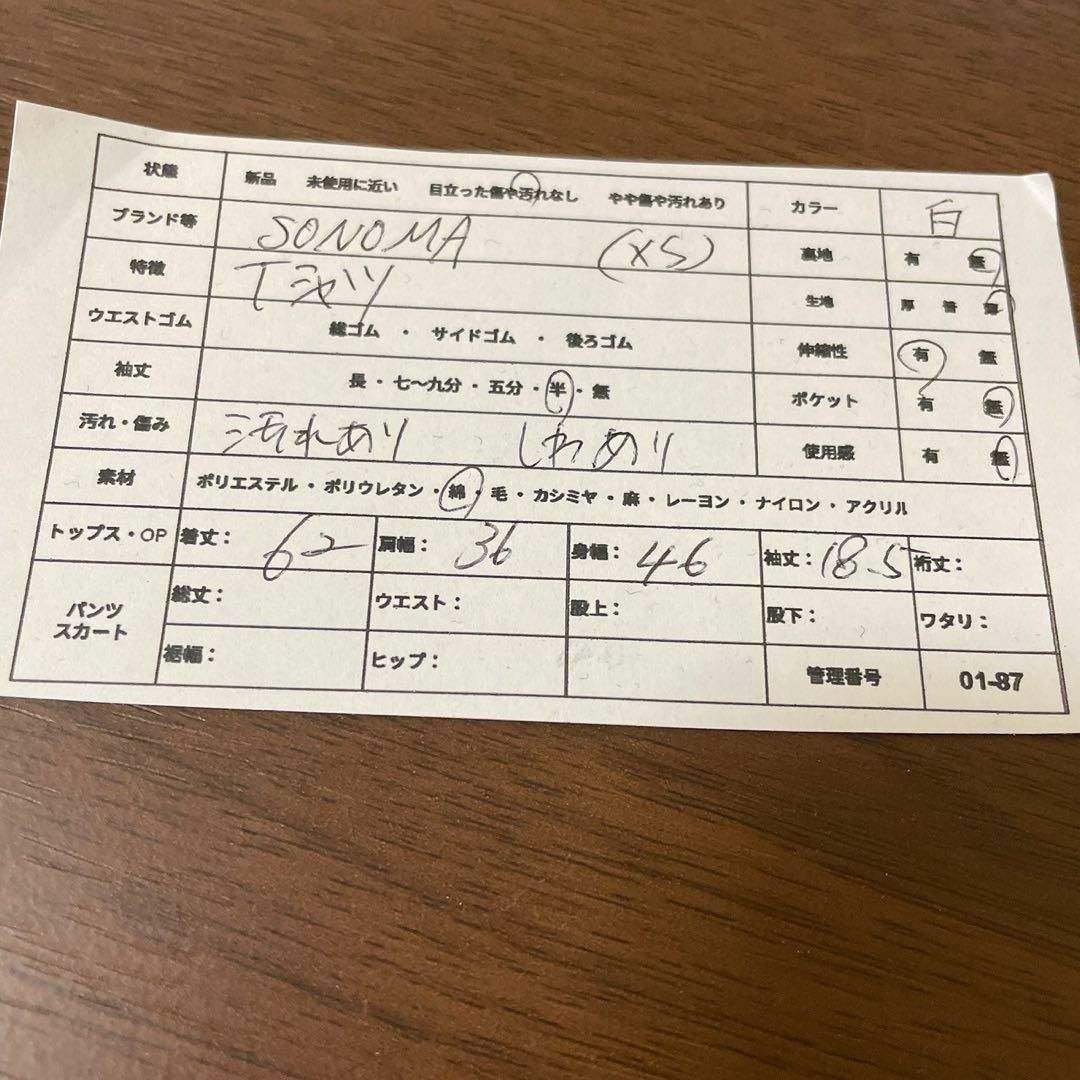 状態 新品 未使用に近い 目立った傷や汚れなし やや傷や汚れあり カラー 白
ブランド等 SONOMA (XS) 裏地 有 無
特徴 Tシャツ 生地 厚 普 薄
ウエストゴム 総ゴム ・ サイドゴム ・ 後ろゴム 伸縮性 有 無
袖丈 長・七〜九分・五分・半・無 ポケット 有 無
汚れ・傷み 汚れあり しわあり 使用感 有 無
素材 ポリエステル・ポリウレタン・綿・毛・カシミヤ・麻・レーヨン・ナイロン・アクリル
トップス・OP 着丈: 62 肩幅: 36 身幅: 46 袖丈: 18.5 裄丈:
パンツ スカート 総丈: ウエスト: 股上: 股下: ワタリ:
裾幅: ヒップ: 管理番号 01-87